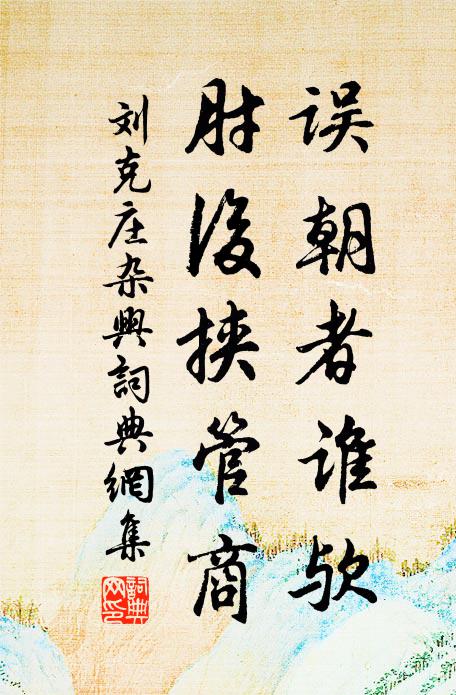 误朝者谁欤
肘後挟管商
刘克庄杂興詞典網集
詞典網印